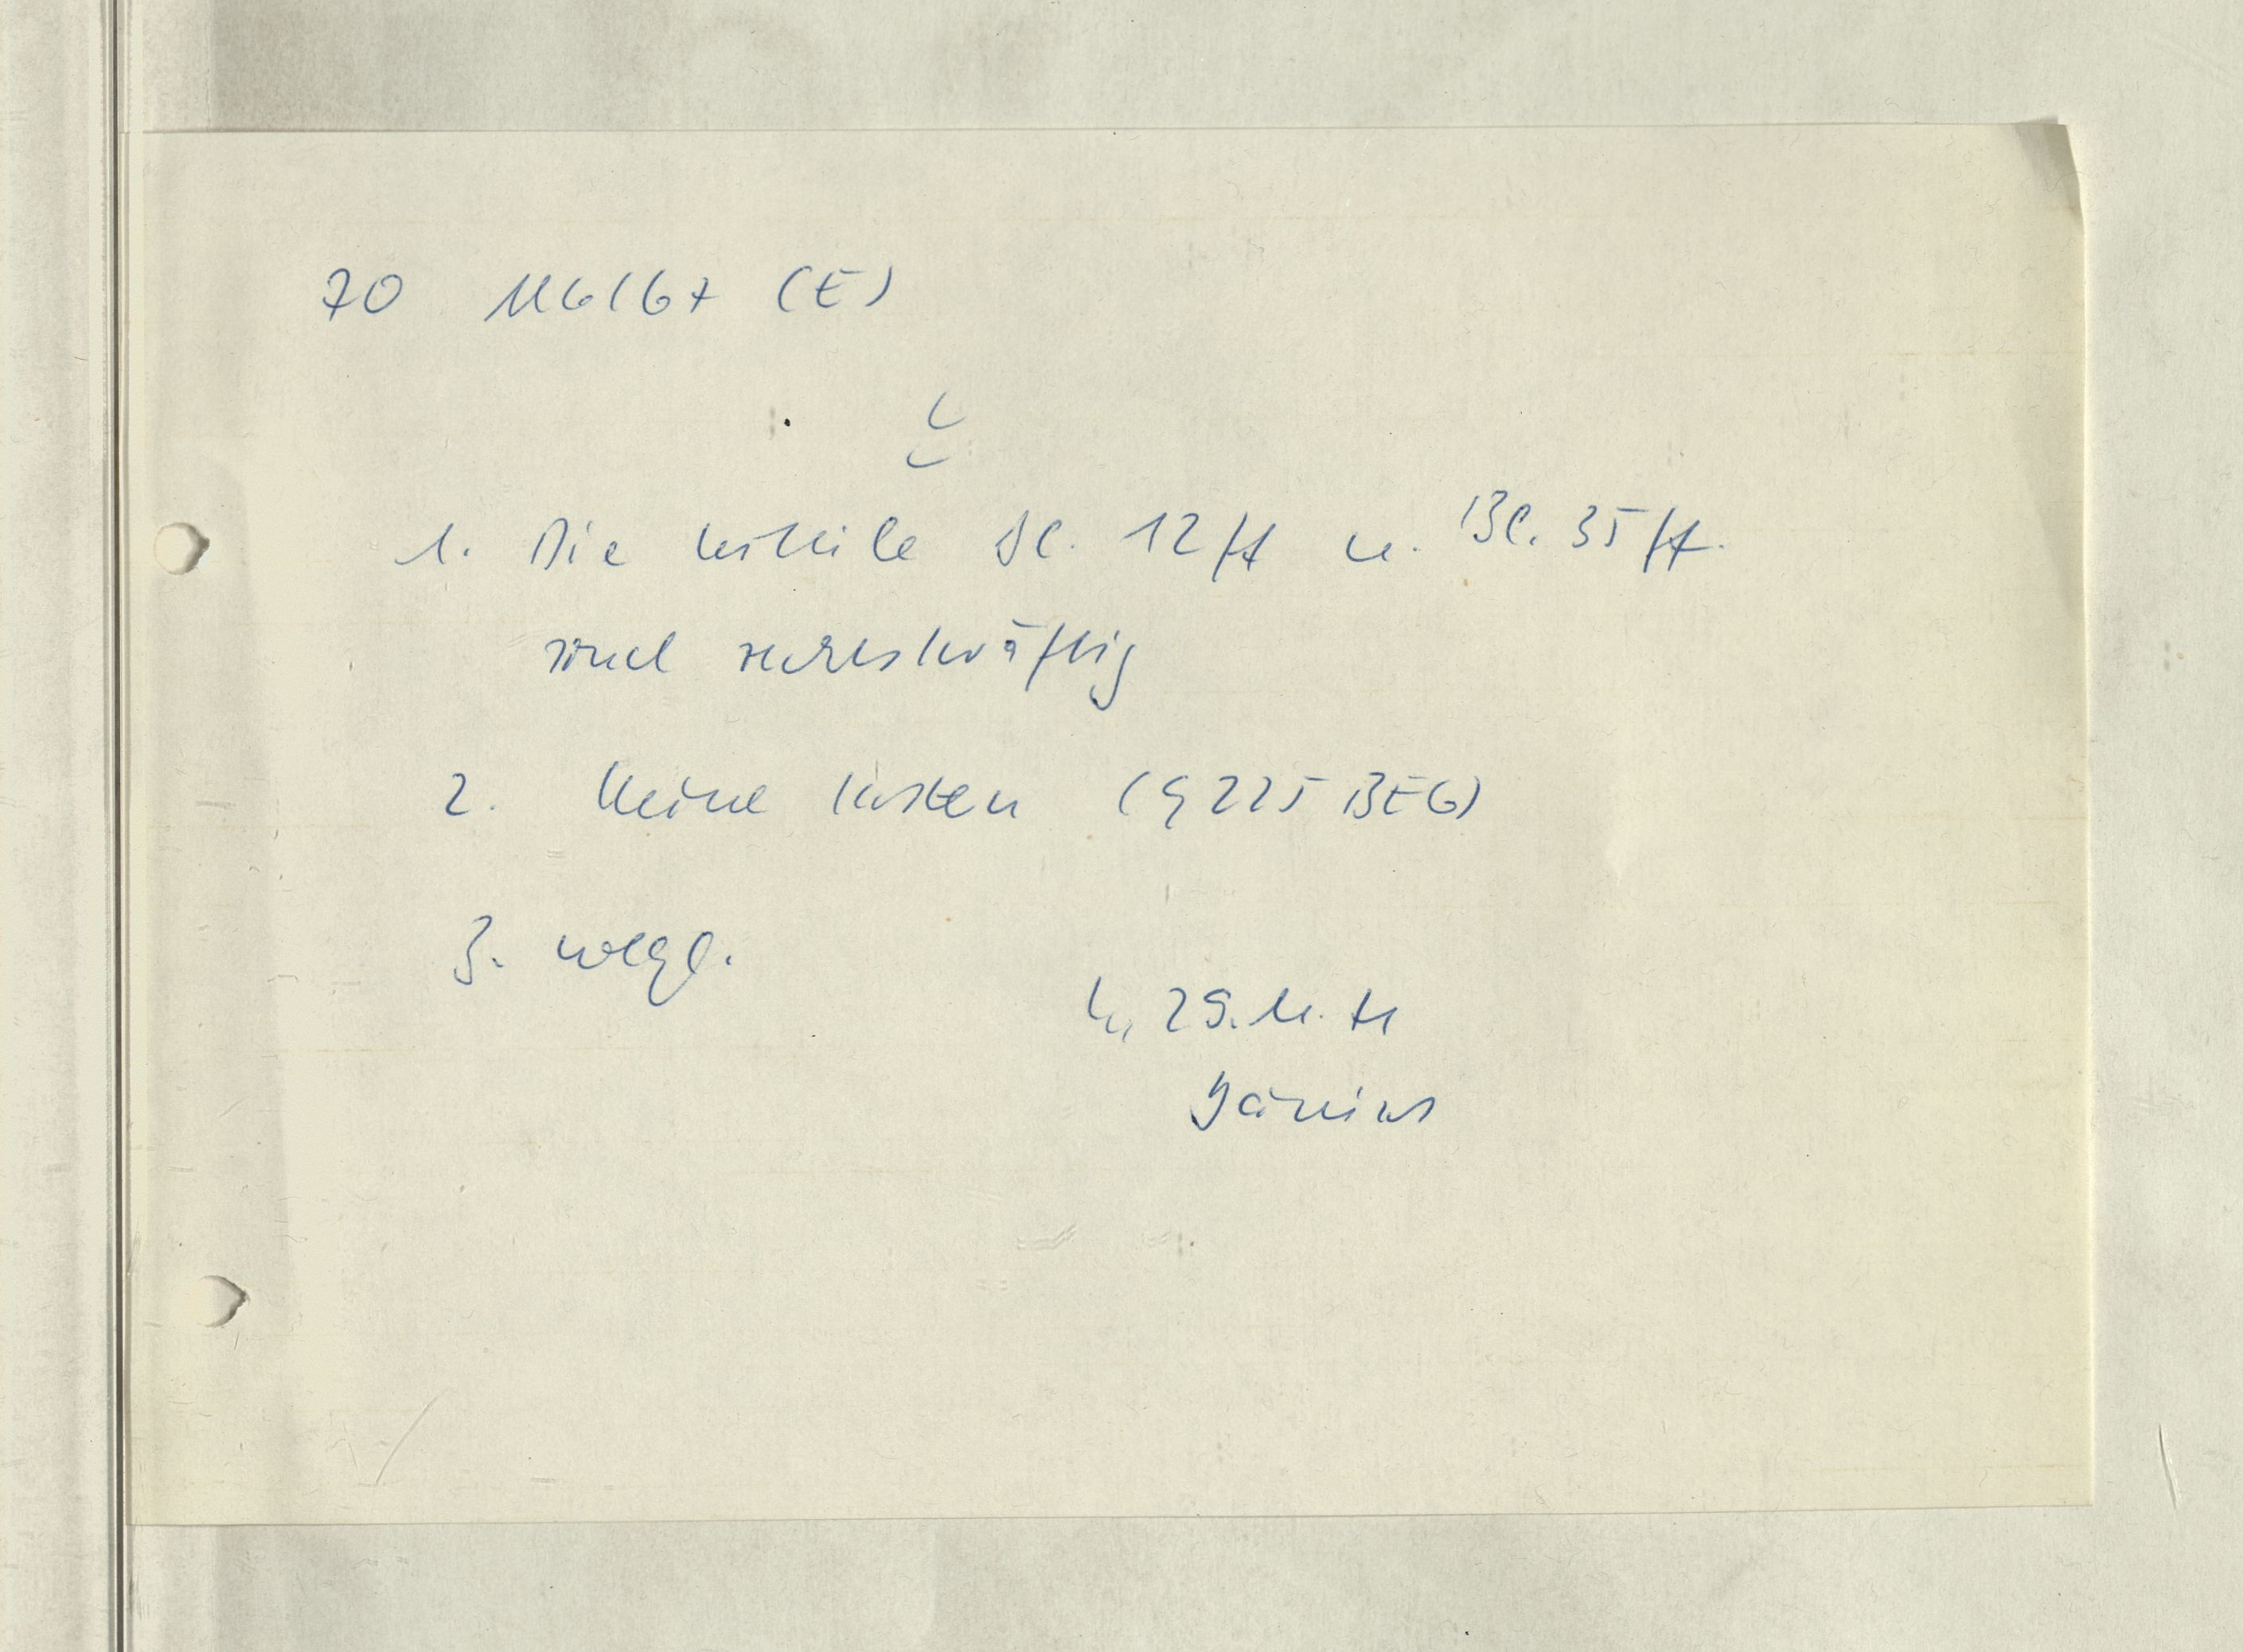 70 116/67 (E)
1. Die Urteile Bl. 12 ff u. Bl. 35 ff.
sind rechtskräftig
2. Keine Kosten (§ 225 BEG)
3. wegl.
29. 11. 71